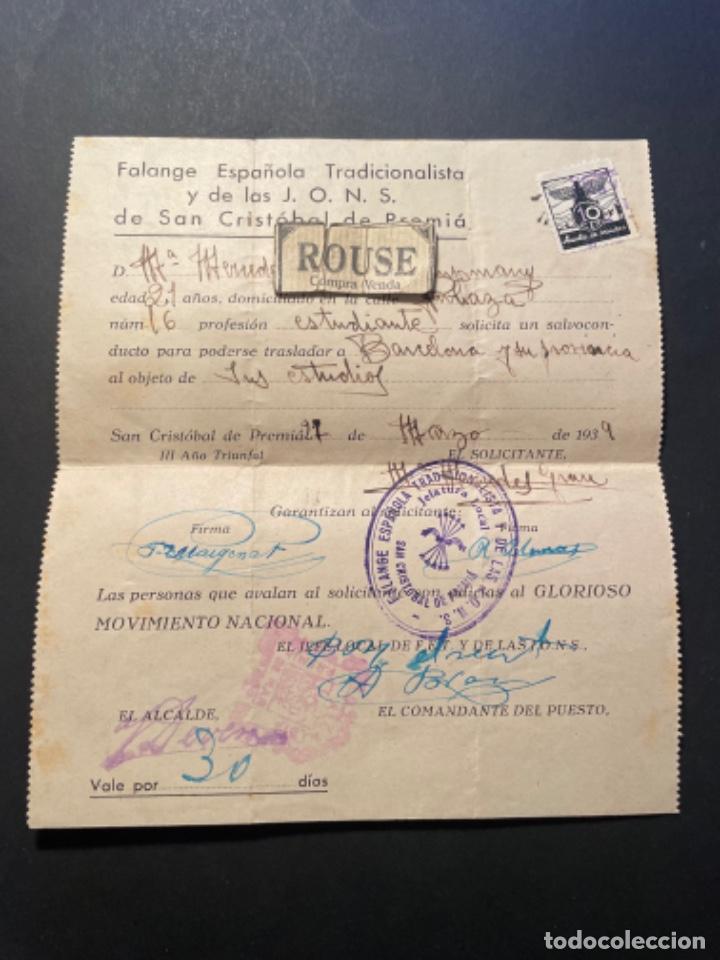 Falange Española Tradicionalista
y de las J. O. N. S.
de San Cristóbal de Premiá
10
Auxilio de invierno
D. Mª Mercedes
ROUSE
Compra Venda
edad 21 años, domiciliado en la calle
núm 16 profesión estudiante solicita un salvocon-
ducto para poderse trasladar a Barcelona y su provincia
al objeto de sus estudios
San Cristóbal de Premiá 27 de Marzo de 1939
III Año Triunfal EL SOLICITANTE,
Mª Mercedes Grau
Garantizan al solicitante:
Firma Firma
FALANGE ESPAÑOLA TRADICIONALISTA Y DE LAS J. O. N. S.
Jefatura Local
SAN CRISTOBAL DE PREMIA
Las personas que avalan al solicitante son adictas al GLORIOSO
MOVIMIENTO NACIONAL.
EL JEFE LOCAL DE F.E.T. Y DE LAS J.O.N.S.,
EL ALCALDE, EL COMANDANTE DEL PUESTO,
Vale por 30 días
todocoleccion
todocoleccion.net